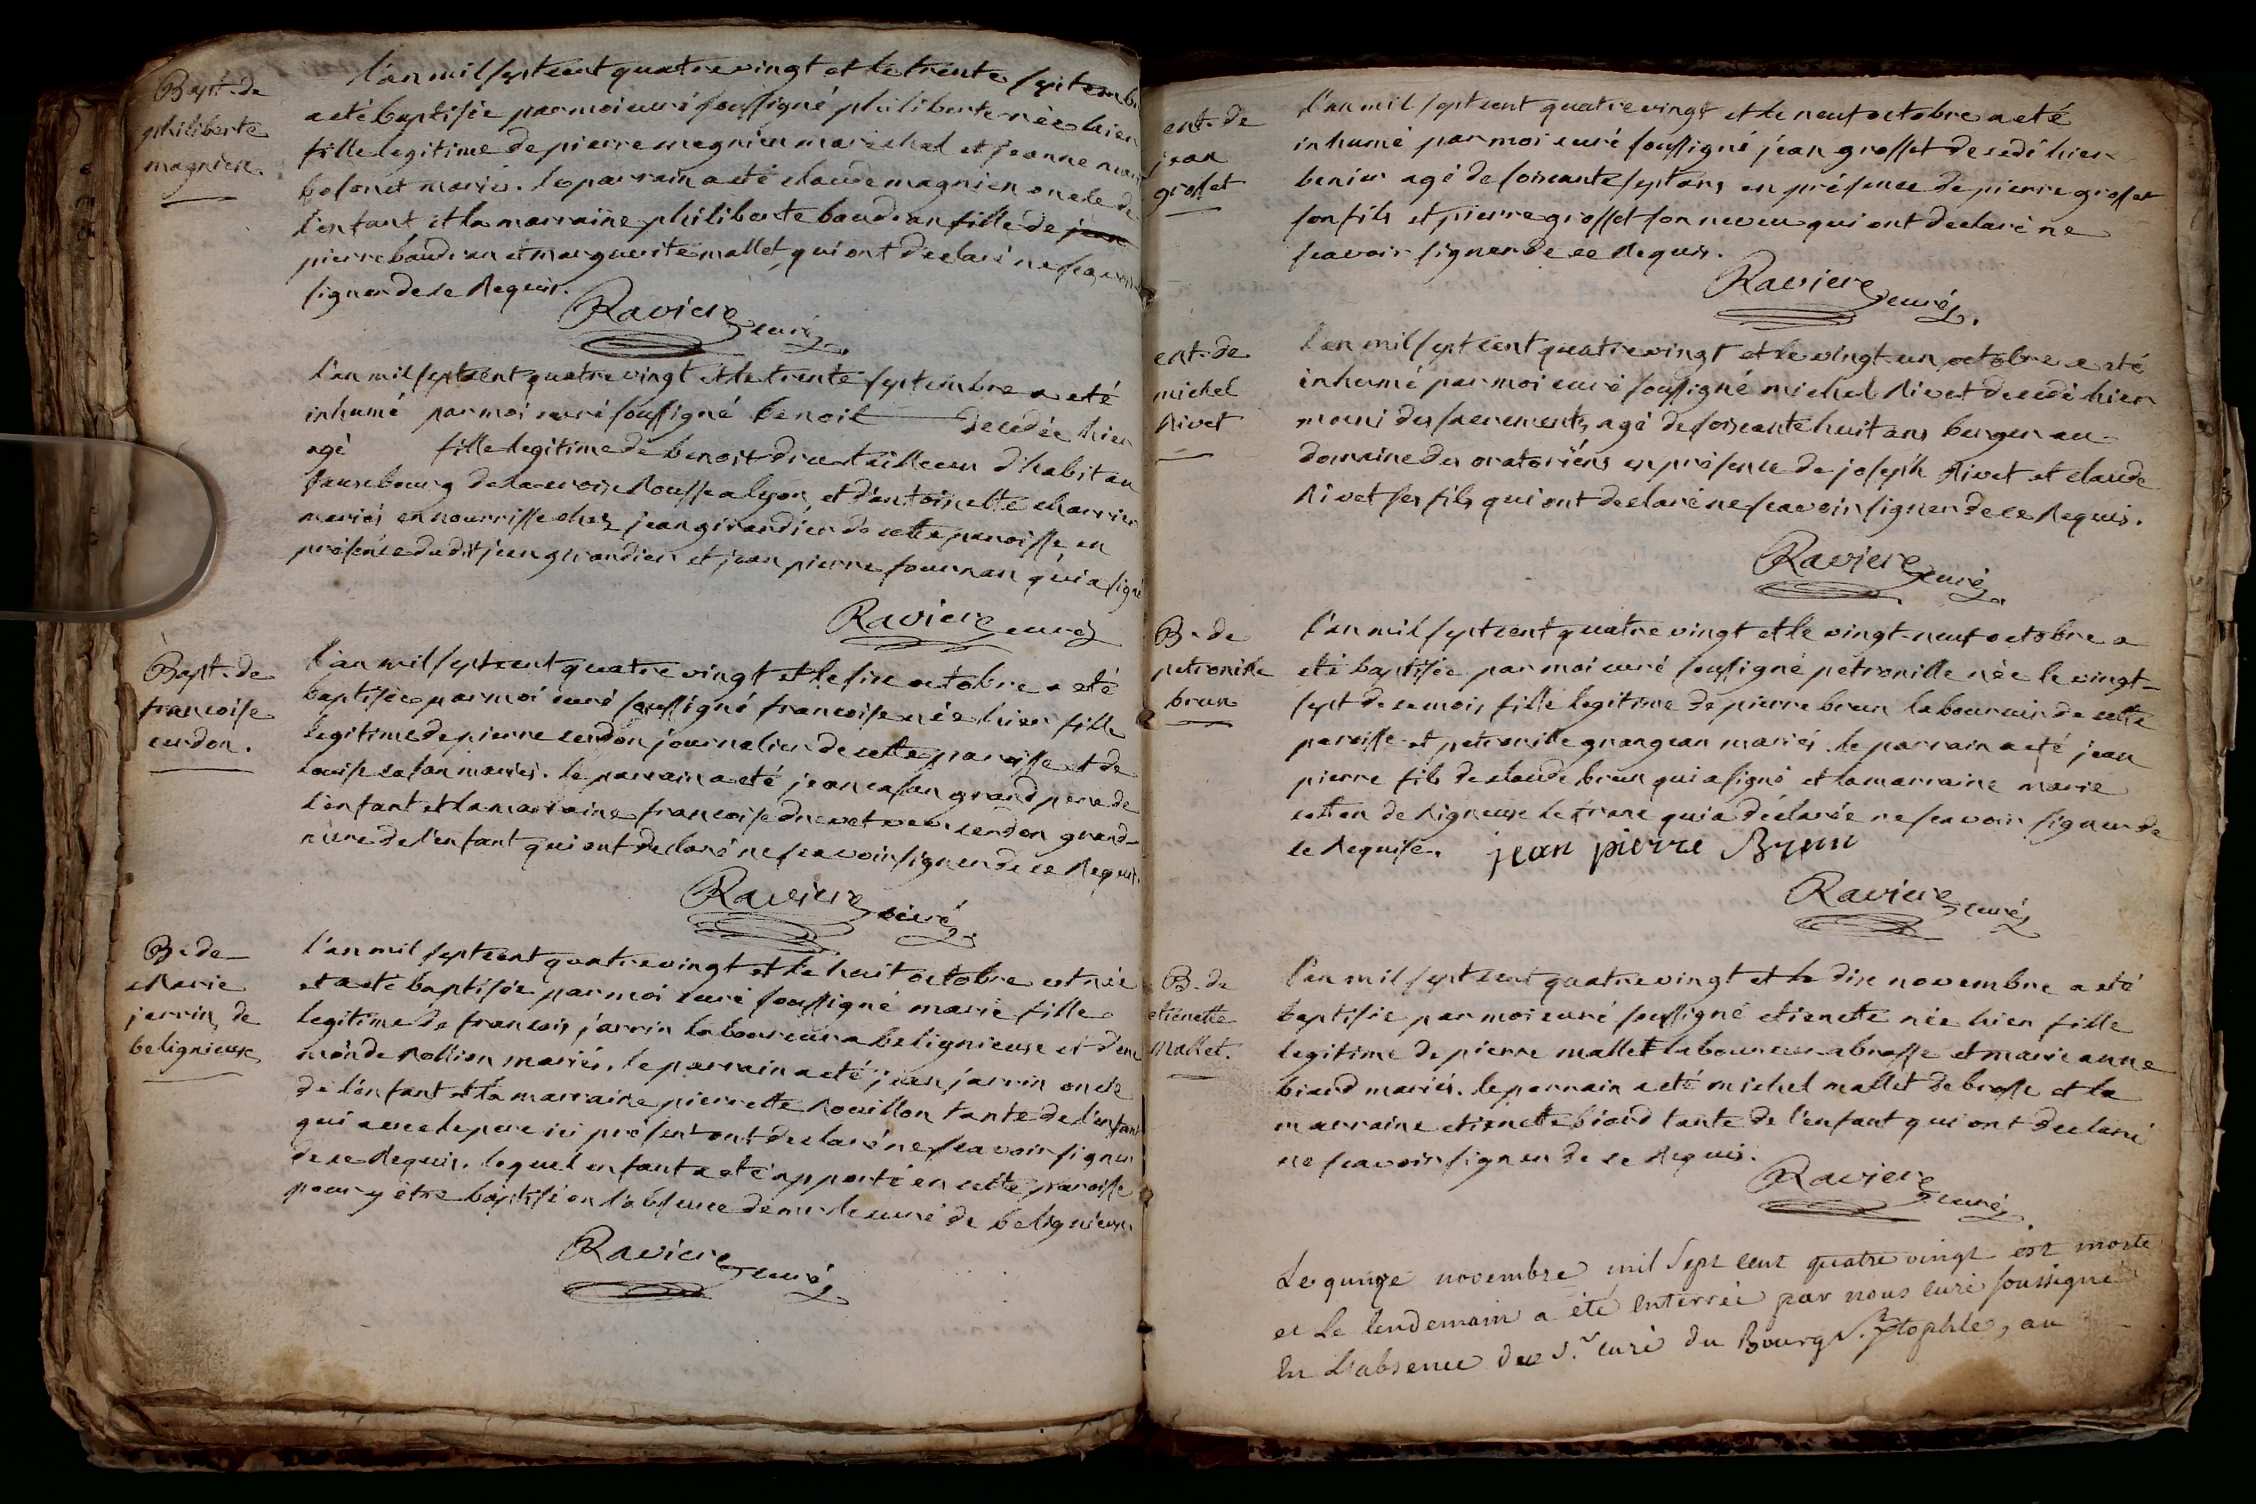 Bapt. de
philiberte
magnien.
l'an mil sept cent quatre vingt et le trente septembre
a eté baptisée par moi curé soussigné philiberte née hier
fille legitime de pierre magnien maréchal et jeanne marie
besonet mariés. le parrain a eté claude magnien oncle de
l'enfant et la marraine philiberte baudran fille de
pierre baudran et marguerite mallet, qui ont declaré ne scavoir
signer de ce Requis.
Raviere curé
l'an mil sept cent quatre vingt et le trente septembre a eté
inhumé par moi curé soussigné benoit decedée hier
agé fille legitime de benoit tailleur d'habit au
fauxbourg de la croix Rousse a lyon, et d'antoinette charrier
mariés en nourrisse chez jean girandier de cette paroisse, en
présence du dit jean girandier et jean pierre qui a signé
Raviere curé
Bapt. de
francoise
curdon.
l'an mil sept cent quatre vingt et le six octobre a eté
baptisée par moi curé soussigné francoise née hier fille
legitime de pierre curdon journalier de cette paroisse et de
louise mariés. le parrain a eté jean grand pere de
l'enfant et la marraine francoise grand-
mere de l'enfant qui ont declaré ne scavoir signer de ce Requis.
Raviere curé.
B. de
Marie
jarrin, de
belignieux
l'an mil sept cent quatre vingt et le huit octobre est née
et a eté baptisée par moi curé soussigné marie fille
legitime de francois jarrin laboureur a belignieux et d'ene
monde Rollion mariés. le parrain a eté jean jarrin oncle
de l'enfant et la marraine pierrette Rouillon tante de l'enfant
qui avec le pere ici présent ont declaré ne scavoir signer
de ce Requis. lequel enfant a eté apporté en cette paroisse
pour y être baptisé en l'absence de mr le curé de belignieux
Raviere curé
ent. de
jean
grosset
l'an mil sept cent quatre vingt et le neuf octobre a eté
inhumé par moi curé soussigné jean grosset decedé hier
agé de soixante sept ans, en présence de pierre grosset
son fils et pierre grosset son neveu qui ont declaré ne
scavoir signer de ce Requis.
Raviere curé.
ent. de
michel
Rivet
l'an mil sept cent quatre vingt et le vingt un octobre a eté
inhumé par moi curé soussigné michel Rivet decedé hier
muni des sacrements, agé de soixante huit ans berger au
domaine des oratoriens en présence de joseph Rivet et claude
Rivet ses fils qui ont declaré ne scavoir signer de ce Requis.
Raviere curé.
B. de
petronille
brun
l'an mil sept cent quatre vingt et le vingt neuf octobre a
eté baptisée par moi curé soussigné petronille née le vingt-
sept de ce mois, fille legitime de pierre brun laboureur de cette
paroisse et petronille grangean mariés. le parrain a eté jean
pierre fils de claude brun qui a signé et la marraine marie
de Rigneux le franc qui a déclarée ne scavoir signer de
ce Requise. jean pierre Brun
Raviere curé
B. de
etienette
Mallet.
l'an mil sept cent quatre vingt et le dix novembre a eté
baptisée par moi curé soussigné etienette née hier fille
legitime de pierre mallet laboureur a brosse et marie anne
biard mariés. le parrain a eté michel mallet de brosse et la
marraine etienette biard tante de l'enfant qui ont declaré
ne scavoir signer de ce Requis.
Raviere curé
Le quinze novembre mil Sept cent quatre vingt est morte
et Le lendemain a été enterrée par nous curé soussigné
En L'absence du S.r curé du Bourg S. Xtophle, au